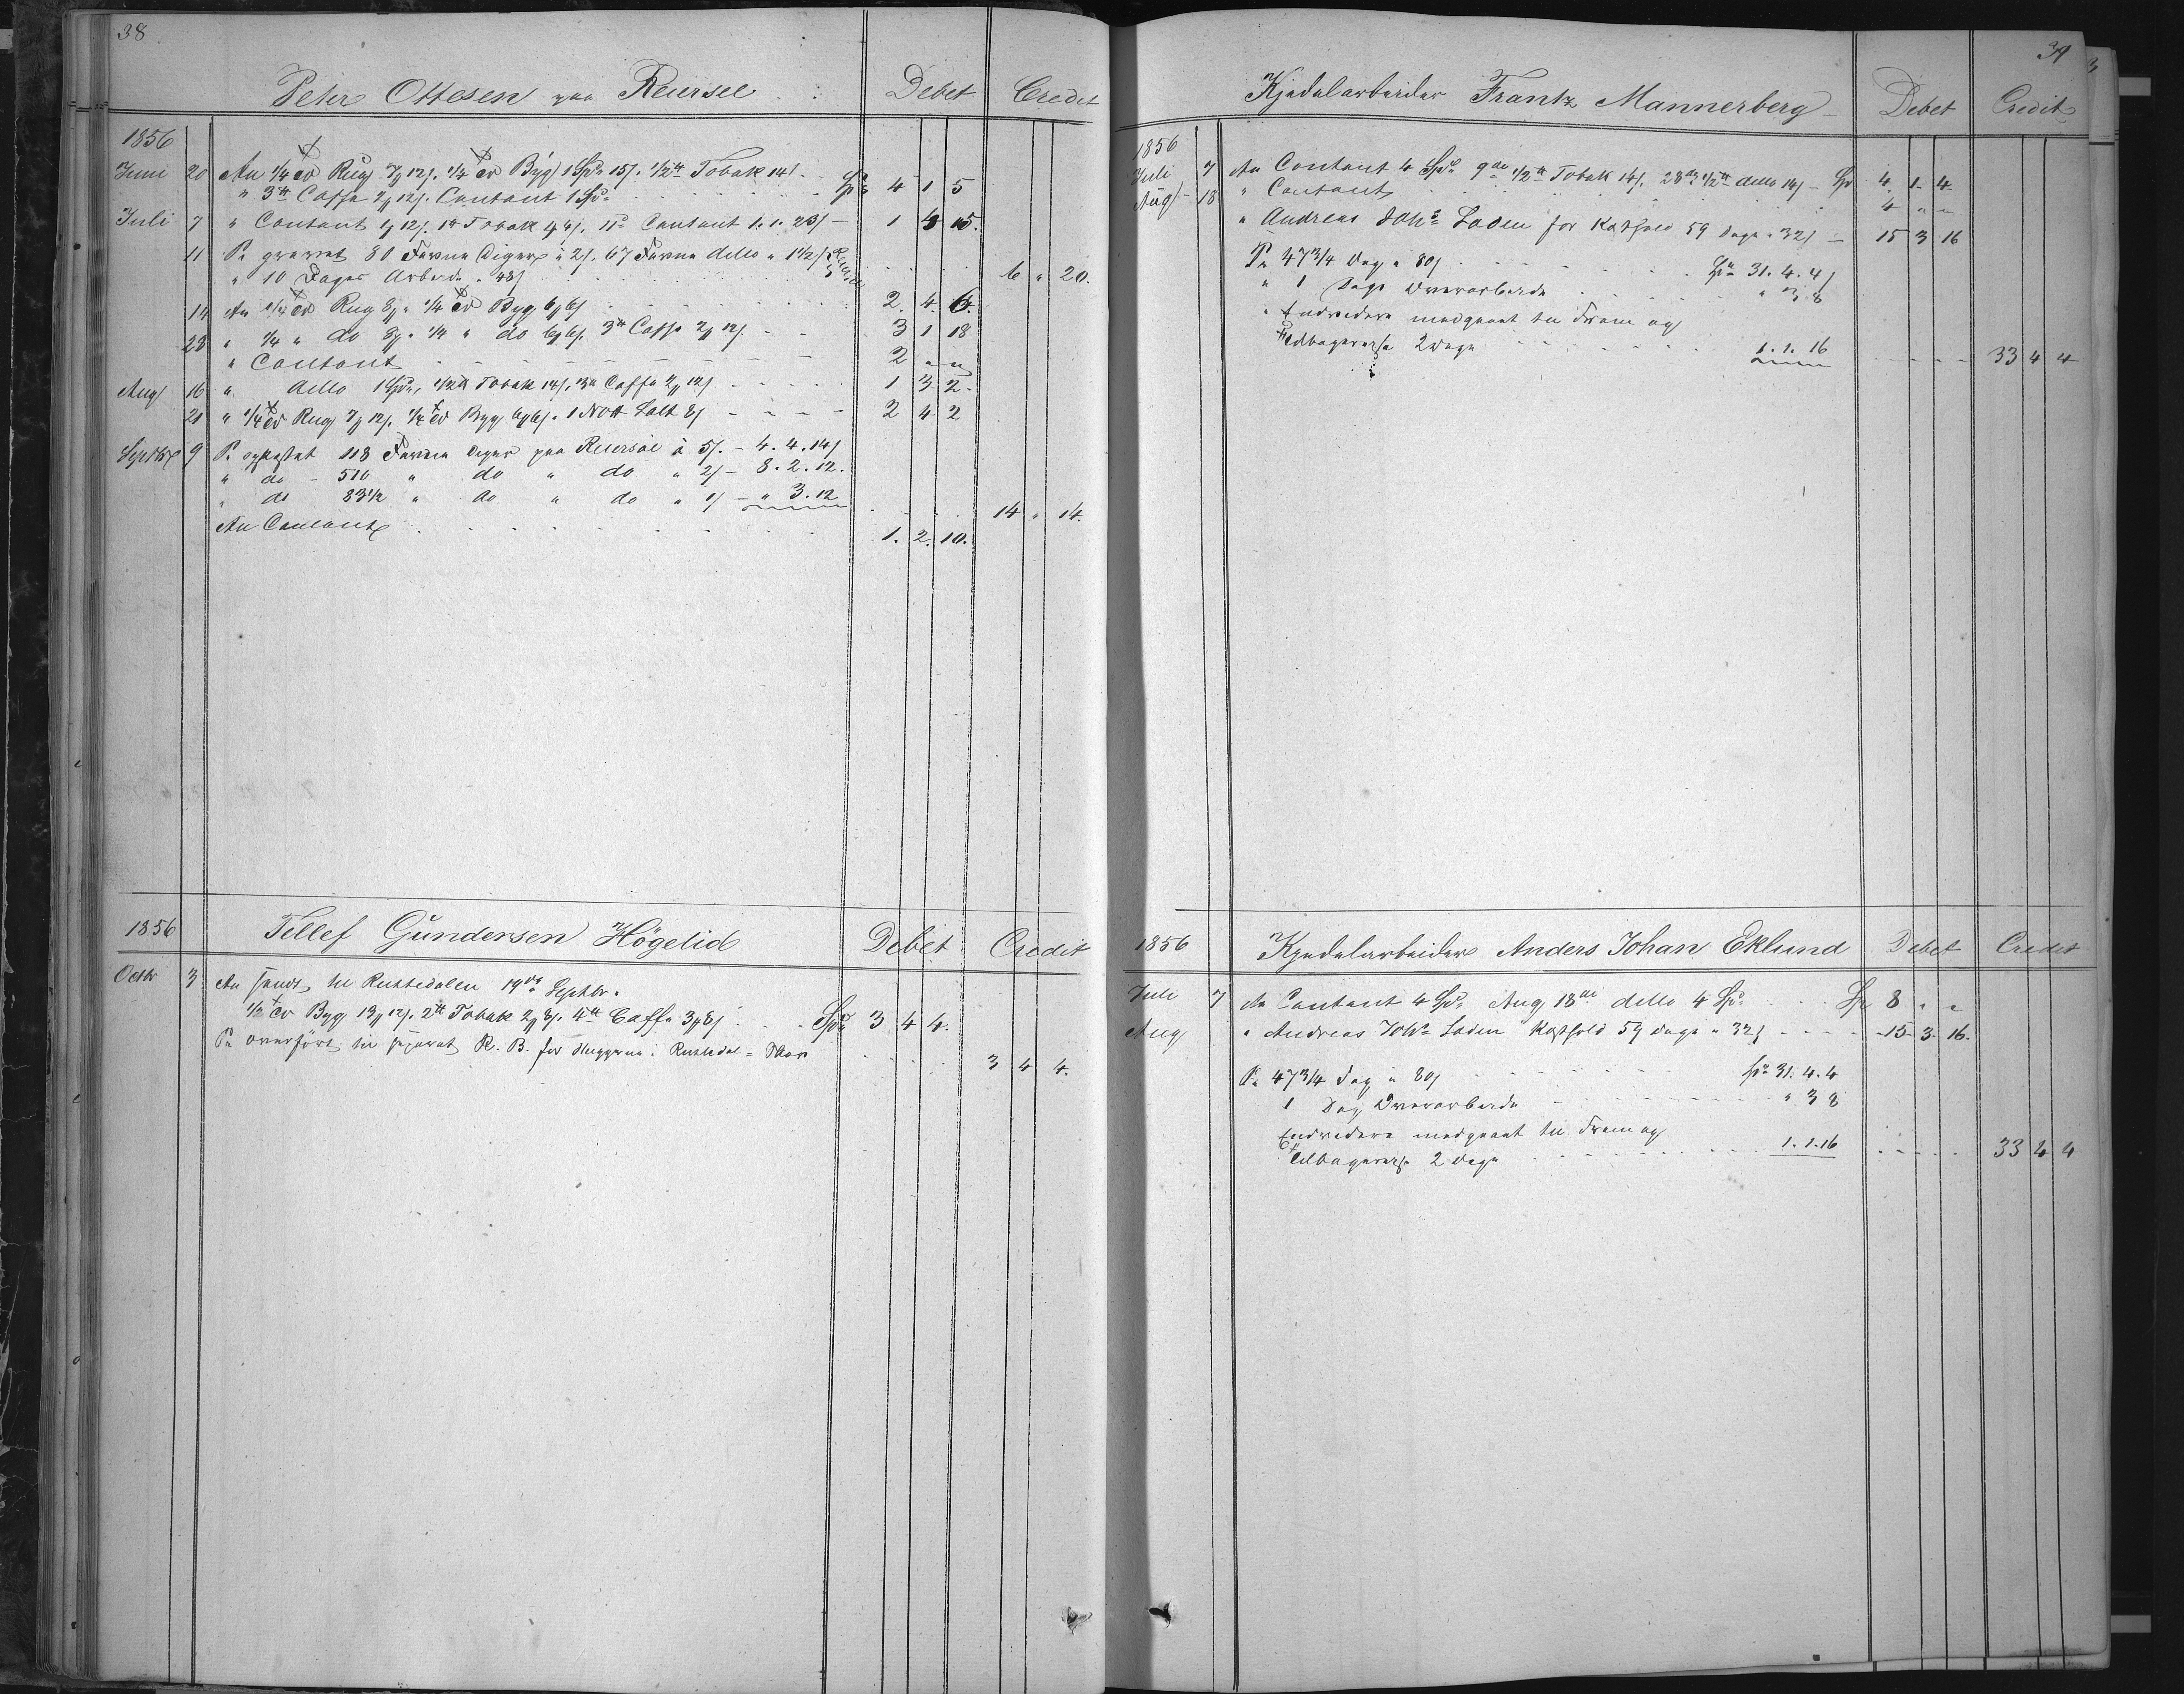 38
Peter Ottesen paa Reiersel Debet Credit
1856
Juni 20 An 1/4 Td Rug 7/12 s. 1/4 Td Byg 1 Spd 15 s. 1/2 ℔ Tobak 14 s.
" 3 ℔ Caffe 2/12 s. Contant 1 Spd. Spd 4 1 5
Juli 7 " Contant 1/12 s. 1 ℔ Tobak 1/4 s. 11te Contant 1. 1. 23 s – 1 4 15.
11 Pr gravet 80 Favne Diger à 2 s. 67 Favne detto a 1 1/2 s
" 10 Dages Arbeide 48 s 6 " 20.
14 An 1/4 Td Rug 8/ " 1/4 Td Byg 6/6 s 2. 4. 6.
28 " 1/4 " do 8/ " 1/4 " do 6/6 s. 3 ℔ Caffe 2/12 s 3 1 18
" Contant 2 " "
Aug 16 " detto 1 Spd, 1/2 ℔ Tobak 14 s, 3 ℔ Caffe 2/12 s 1 3 2.
21 " 1/4 Td Rug 7/12 s. 1/4 Td Byg 6/6 s. 1 Salt 8 s 2 4 2
Septbr 9 Pr opkastet 118 Favne Diger paa Reiersöl à 5 s. – 4. 4. 14 s
" do – 510 " do " do " 2 s – 8. 2. 12.
" do 83 1/2 " do " do " 1 s – " 3. 12
14 " 14.
An Contant 1. 2. 10.
1856 Tellef Gundersen Högelid Debet Credit
Octbr 3 An sendt til Ruktedalen 19de Septbr.
1/2 Td Byg 13/12 s. 2 ℔ Tobak 2/8 s. 4 ℔ Caffe 3/8 s Spd 3 4 4.
Pr overfört til separat K. B. for i 3 4 4.
39
Kjedelarbeider Frantz Mannerberg Debet Credit
1856
Juli 7 An Contant 4 Spd. 9de 1/2 ℔ Tobak 14 s. 28de 1/2 ℔ detto 14 s – Spd 4. 1. 4.
Aug 18 " Contant 4 " "
" Andreas Johs Loden for Kosthold 59 Dage a 32 s – 15 3 16
Pr 47 3/4 Dag a 80 s Spd 31. 4. 4 s
" 1 Dags Overarbeide " 3. 8
" Endvidere medgaaet til Frem og
Tilbagereise 2 Dage 1. 1. 16 33 4 4
1856 Kjedelarbeider Anders Johan Eklund Debet Credit
Juli 7 An Contant 4 Spd. Aug 18de detto 4 Spd Spd 8 " "
Aug " Andreas Johs Loden Kosthold 59 Dage a 32 s 15 3. 16.
Pr 47 3/4 Dag a 80 s Spd 31. 4. 4
1 Dag Overarbeide " 3 8
Endvidere medgaaet til Frem og
Tilbagereise 2 Dage 1. 1. 16 33 4 4